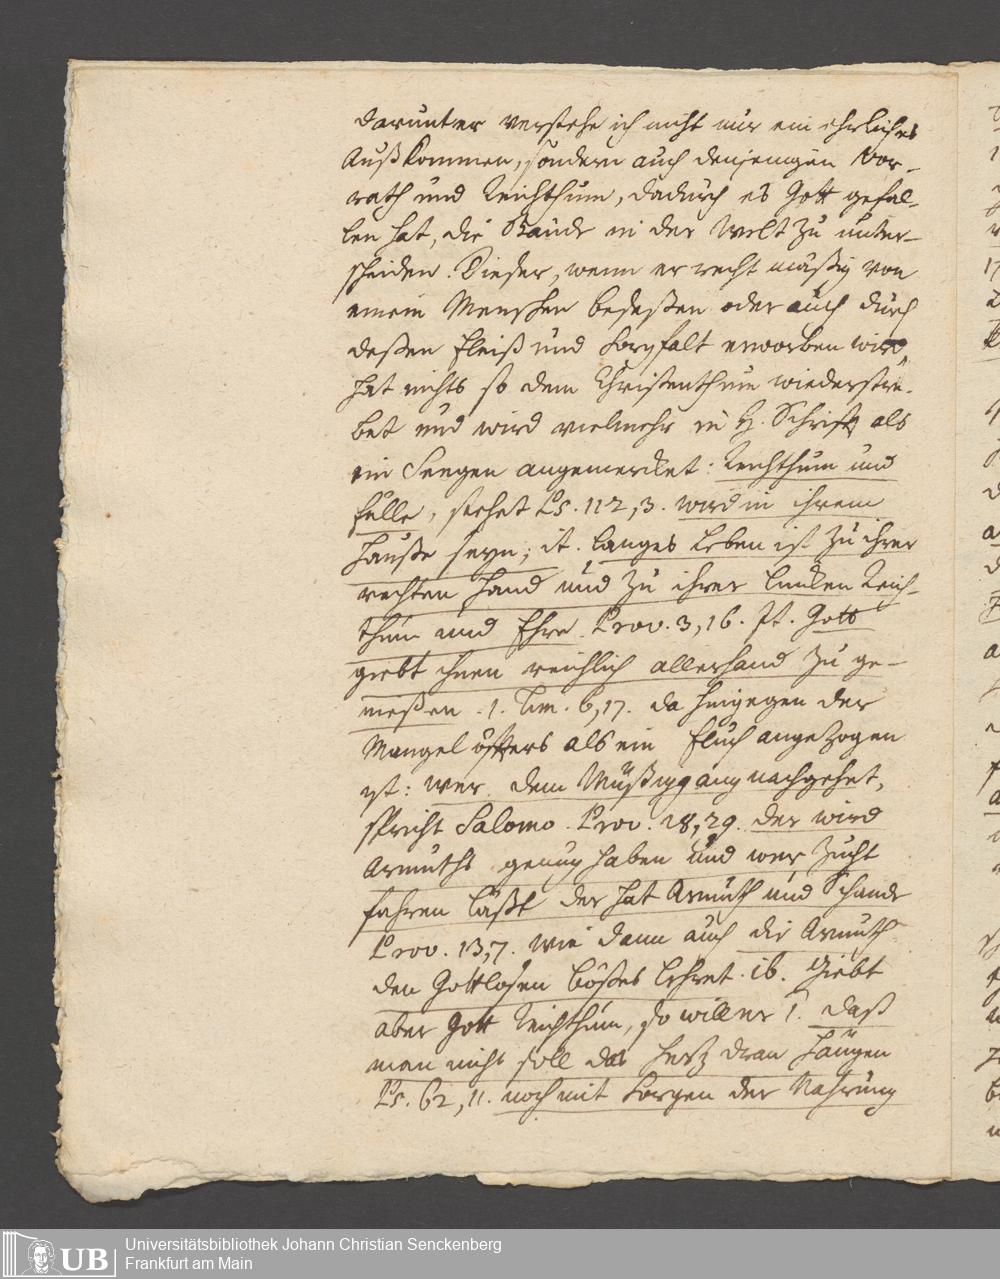 darunter verstehe ich nicht nur ein ehrliches
Außkommen, sondern auch denjenigen Vor-
rath und Reichthum, dadurch es Gott gefal-
len hat, die Stände in der Welt zu unter-
scheiden. Dieser, wenn er rechtmäßig von
einem Menschen beseßen oder auch durch
deßen Fleiß und Sorgfalt erworben wird,
hat nichts so dem Christenthum wiederstre-
bet und wird vielmehr in H. Schrifft als
ein Seegen angemercket: Reichthum und
Fülle, stehet Ps. 112,3. wird in ihrem
Hauße seyn; it. langes Leben ist zu ihrer
rechten Hand und zu ihrer lincken Reich-
thum und Ehre. Prov. 3,16. It. Gott
giebt ihnen reichlich allerhand zu ge-
nießen. 1. Tim. 6,17. da hingegen der
Mangel öffters als ein Fluch angezogen
ist: wer dem Müßiggang nachgehet,
spricht Salomo Prov. 28,29. der wird
Armuths genug haben und wer Zucht
fahren läßt der hat Armuth und Schande
Prov. 13,7. wie dann auch die Armuth
den Gottlosen böses lehret. ib. Giebt
aber Gott Reichthum, so will er 1. daß
man nicht soll das Hertz dran hängen
Ps. 62,11. noch mit Sorgen der Nahrung
UB
Universitätsbibliothek Johann Christian Senckenberg
Frankfurt am Main